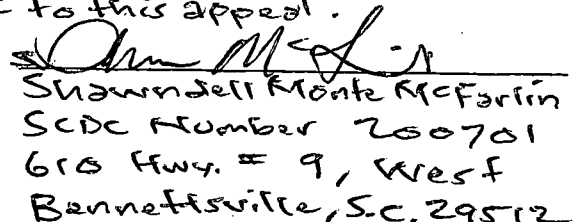 to this appeal.
s/
Shawndell Monte McFarlin
SCDC Number 200701
610 Hwy. # 9, West
Bennettsville, S.C. 29512